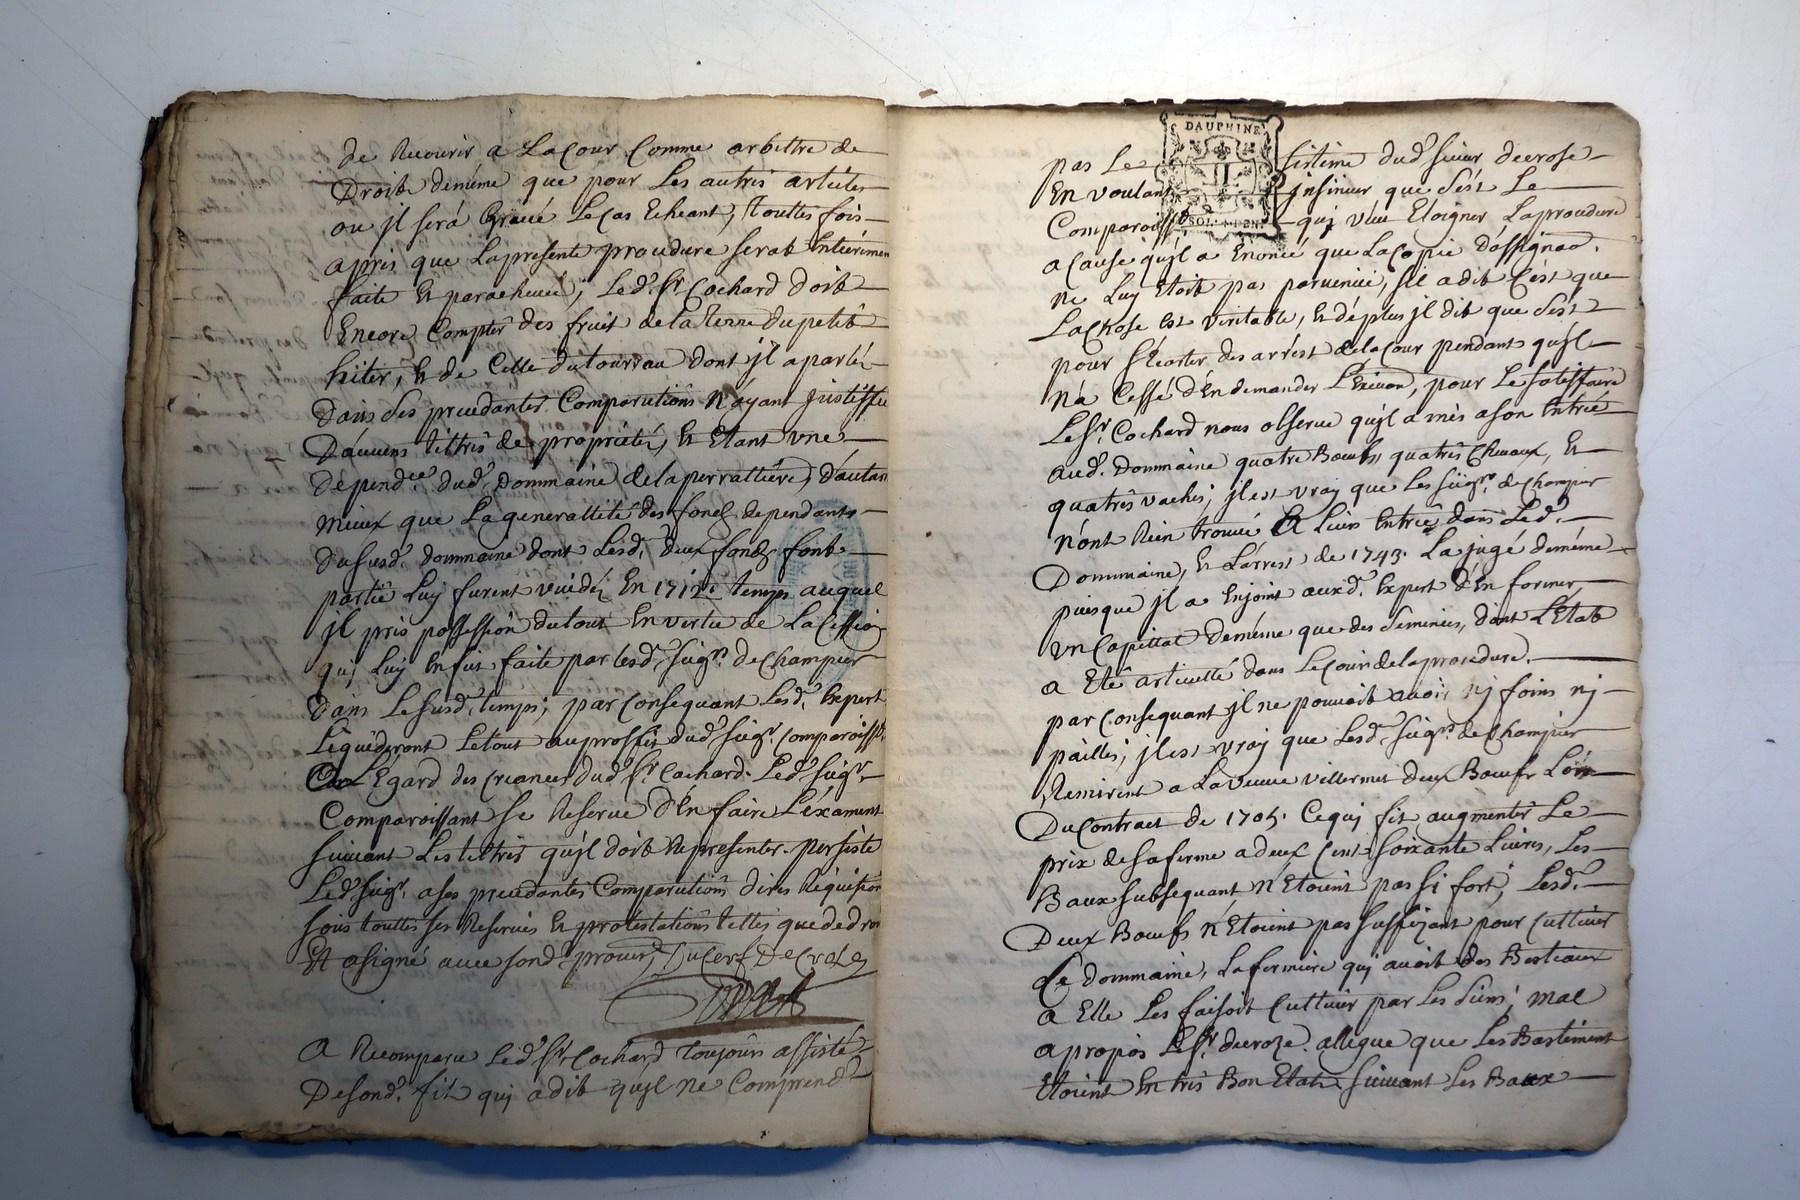 de Recourir a La Cour Comme arbittre de
Droit demémé que pour Les autres articles
ou jl será Grévé Le Cas Echeant, touttes fois
apres que La presente procudure serat Entiéremen
faite Et parachevée; Led. Sr. Cochard doit
Encore Compter des fruit de la terre du petit
hiter, Et de Celle du tourrau dont jl a parlé
dans ses precedantes Comparutions N'áyant justiffié
D'aucuns tittres de propriété, Et Etant une
dépendce. dud. Dommaine de la perrattiére, d'autan
mieux que La generallité des fonds dependants
du susd. dommaine dont Lesd. deux fonds font
partie Luy furent vuidés En 1712. temps auquel
jl pris possession du tout En vertu de La Cession
quj Luy En fut faite par Lesd. Seigrs. de Champier
dans Le susd. temps; par Consequant Lesd. Expert
Liquideront Le tout au proffit dud. Seigr. Comparoisst.
A L'Egard des Creances dud. Sr. Cochard. Led. Seigr.
Comparoissant Se Reserve d'En faire L'éxament
suivant Les tittres qu'jl doit Representer. persiste
Led. Seigr. a ses precedantes Comparutions dires Requisition
sous touttes ses Reserves Et protestations telles que de dro
Et a signé avec sond. procur. Ducerf De Croze
A Recomparu Led. Sr. Cochard, toujours assisté
De sond. fit quj a dit qu'jl ne Comprend
DAUPHINE
pas Le sistime dud. sieur decrose
En voulant jnsinuer que s'ést Le
Comparoisst. quj veut Eloigner La procudure
a Cause qu'jl a Enoncé que La Copie d'assignaon.
ne Luy Etoit pas parvenue, s'jl a dit C'ést que
La Chose est veritable, Et de plus jl dit que s'est
pour s'Ecarter des arrést de la Cour pendant qu'jl
N'a Cessé d'En demander L'Exécuon, pour Le satisfaire
Le Sr. Cochard nous observe qu'jl a mis a son Entrée
aud. Dommaine quatre Bœufs, quatres Chevaux, Et
quatrés vaches; jl est vraj que Les Seigrs. de Champier
n'ont Rien trouvé A Leur Entrée dans Led.
Dommaine, Et L'arrest de 1743. La jugé demémé
puis que jl a Enjoint auxd. Expert d'En former
un Capittal demémé que des semences, dont L'Etat
a Eté articullé dans Le Cour de la procedure.
par Consequant jl ne pouvoit avoir nj foins nj
pailles; jl est vraj que Lesd. Seigrs. de Champier
Remirent a La veuve villermet deux Bœufs Lors
Du Contract de 1705. Ce quj fit augmenter Le
prix de sa ferme a deux Cent soixante Livres, Les
Baux subsequant N'Etoient pas si fort, Lesd.
Deux Bœufs N'Etoient pas suffizant pour Cultiver
Le dommaine, La fermiere quj avoit des Bestiaux
a Elle Les faisoit Cultiver par Les siens; mal
a propos Le Sr. decroze allegue que Les Bastiment
Etoient En trés Bon Etat suivant Les Baux